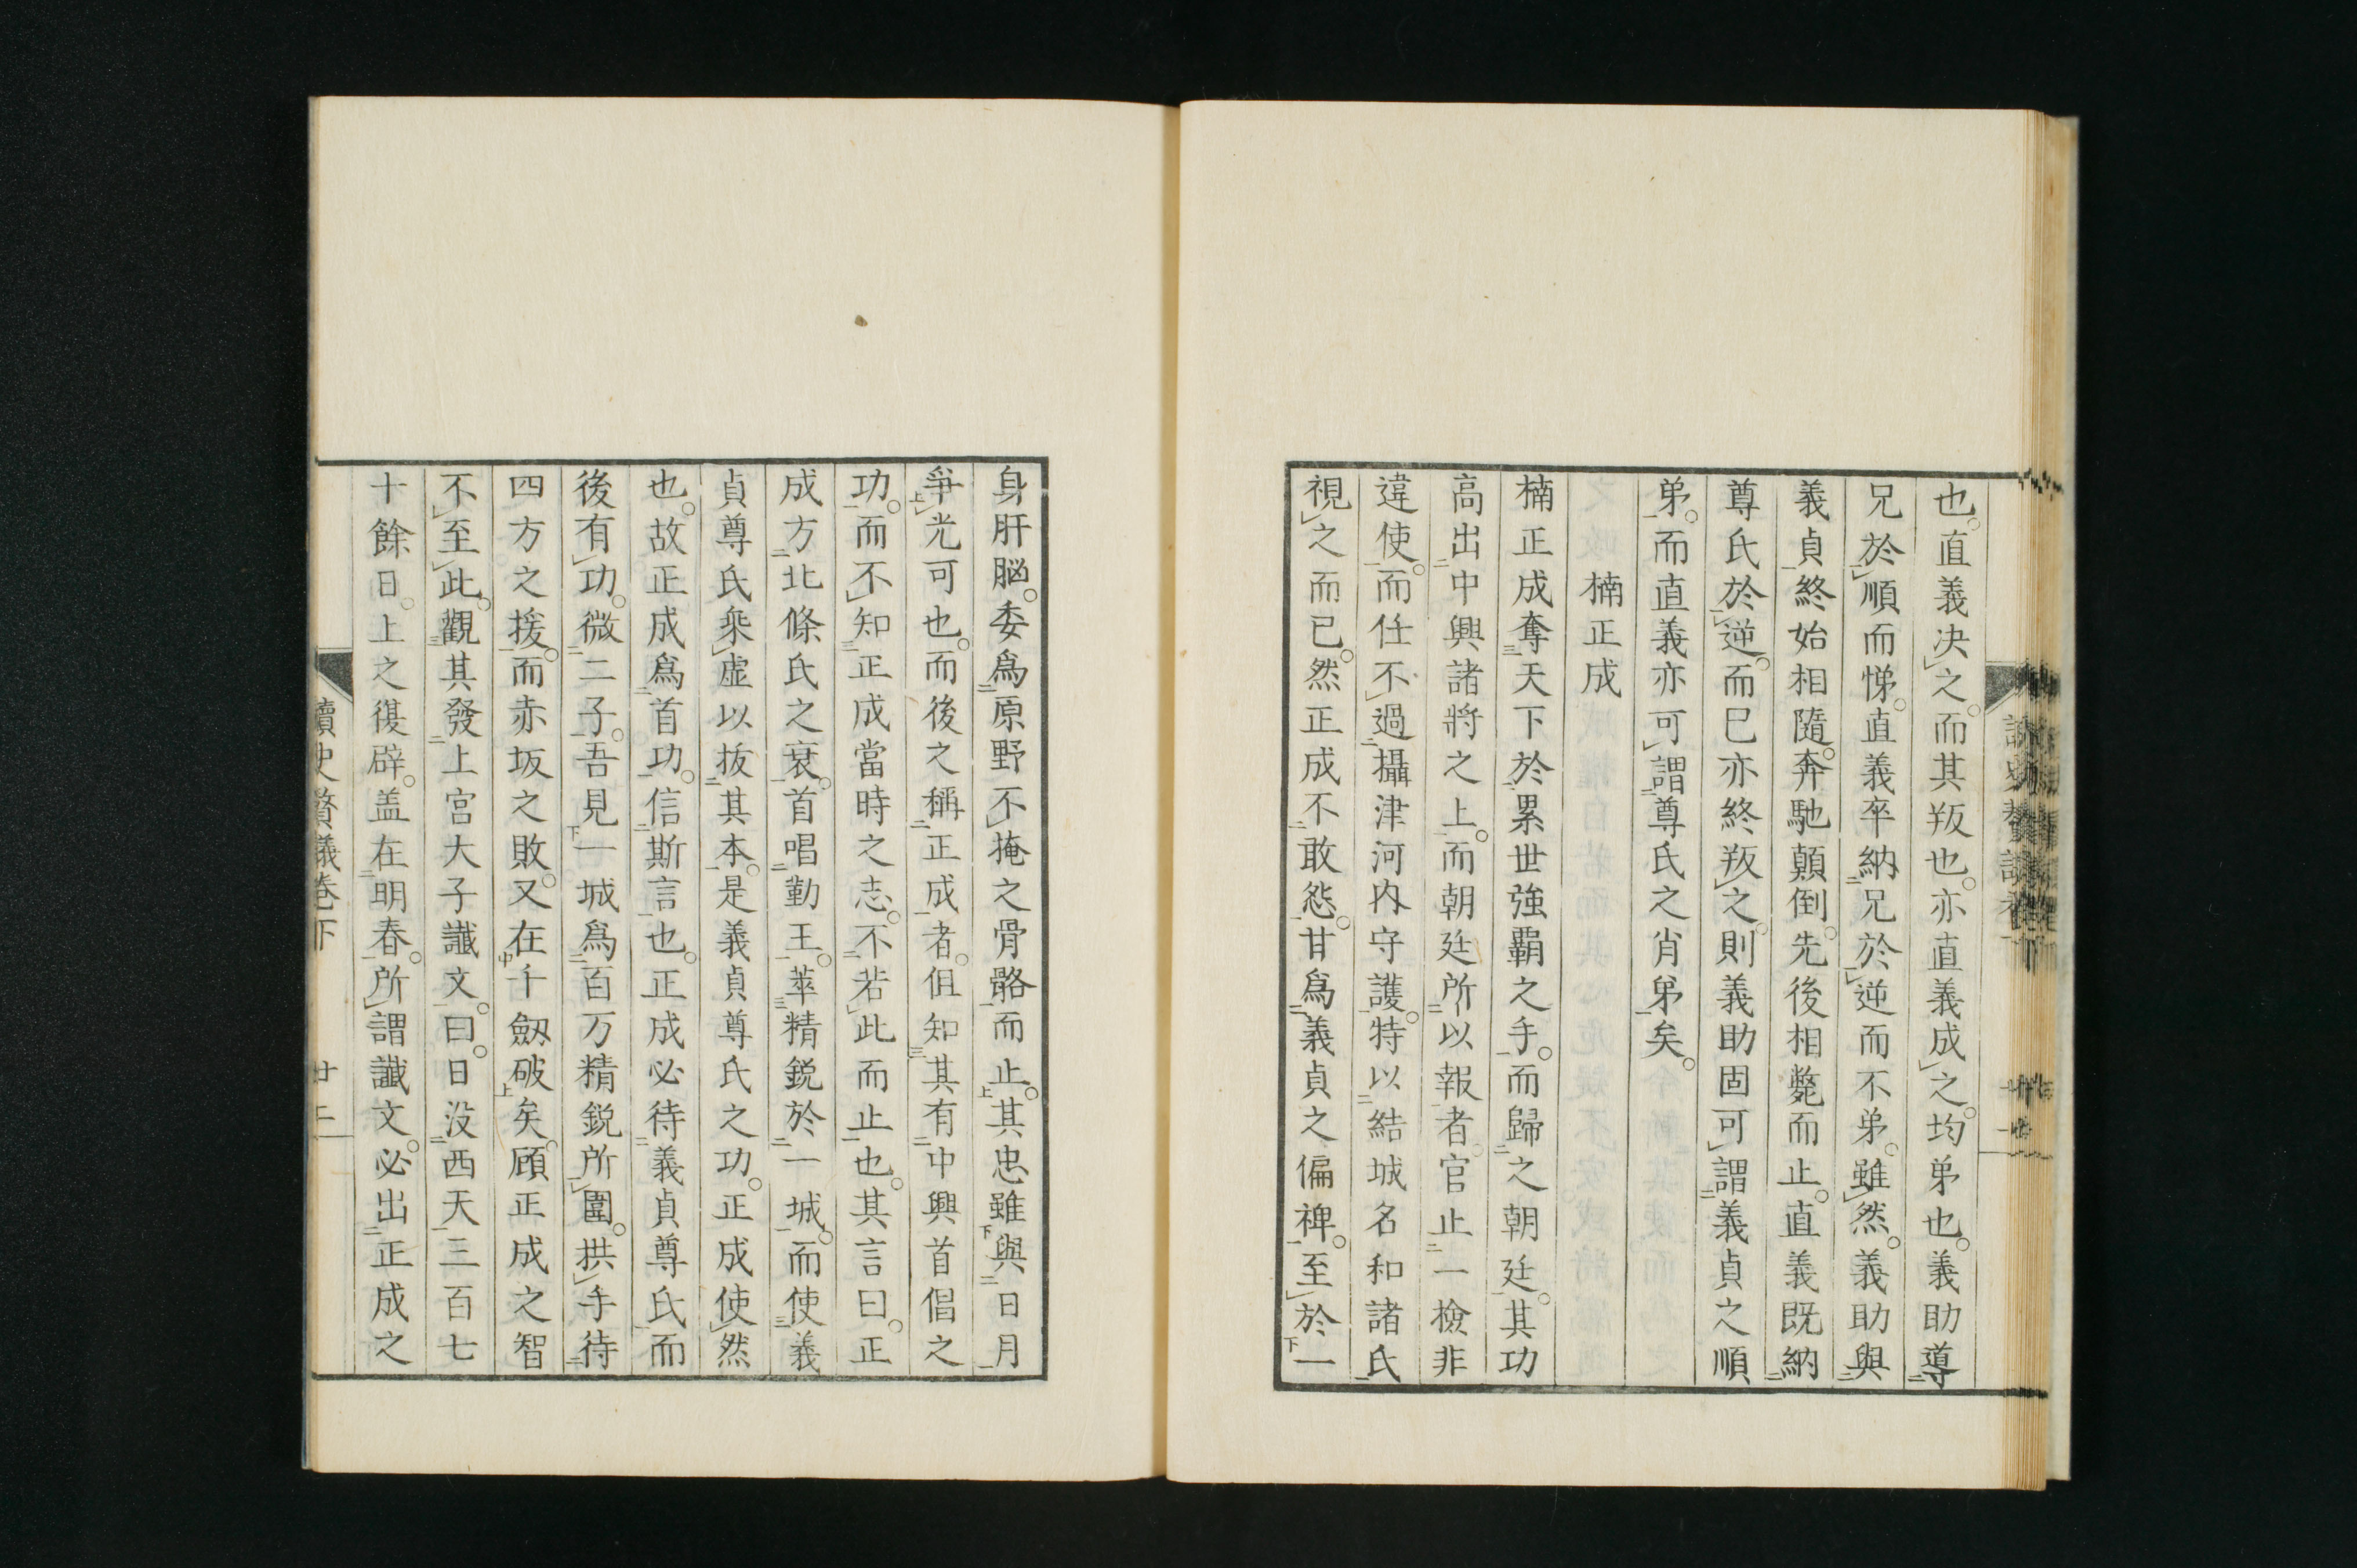 也。直義决之。而其叛也。亦直義成之。均弟也。義助導
兄於順而悌。直義卒納兄於逆而不弟。雖然。義助與
義貞終始相隨。奔馳顛倒。先後相斃而止。直義既納
尊氏於逆。而已亦終叛之。則義助固可謂義貞之順
弟。而直義亦可謂尊氏之肖弟矣。
楠正成
楠正成奪天下於累世強覇之手。而歸之朝廷。其功
高出中興諸將之上。而朝廷所以報者。官止一檢非
違使。而任不過攝津河内守護。特以結城名和諸氏
視之而已。然正成不敢怨。甘爲義貞之偏裨。至於一
身肝脳。委爲原野不掩之骨骼而止。其忠雖與日月
爭光可也。而後之稱正成者。但知其有中興首倡之
功。而不知正成當時之志。不若此而止也。其言曰。正
成方北條氏之衰。首唱勤王。萃精鋭於一城。而使義
貞尊氏乘虛以抜其本。是義貞尊氏之功。正成使然
也。故正成爲首功。信斯言也。正成必待義貞尊氏而
後有功。微二子。吾見一城爲百万精鋭所圍。拱手待
四方之援。而赤坂之敗。又在千劔破矣。顧正成之智
不至此。觀其發上宮大子讖文。曰。日没西天三百七
十餘日。上之復辟。盖在明春。所謂讖文。必出正成之
讀史贅議卷下